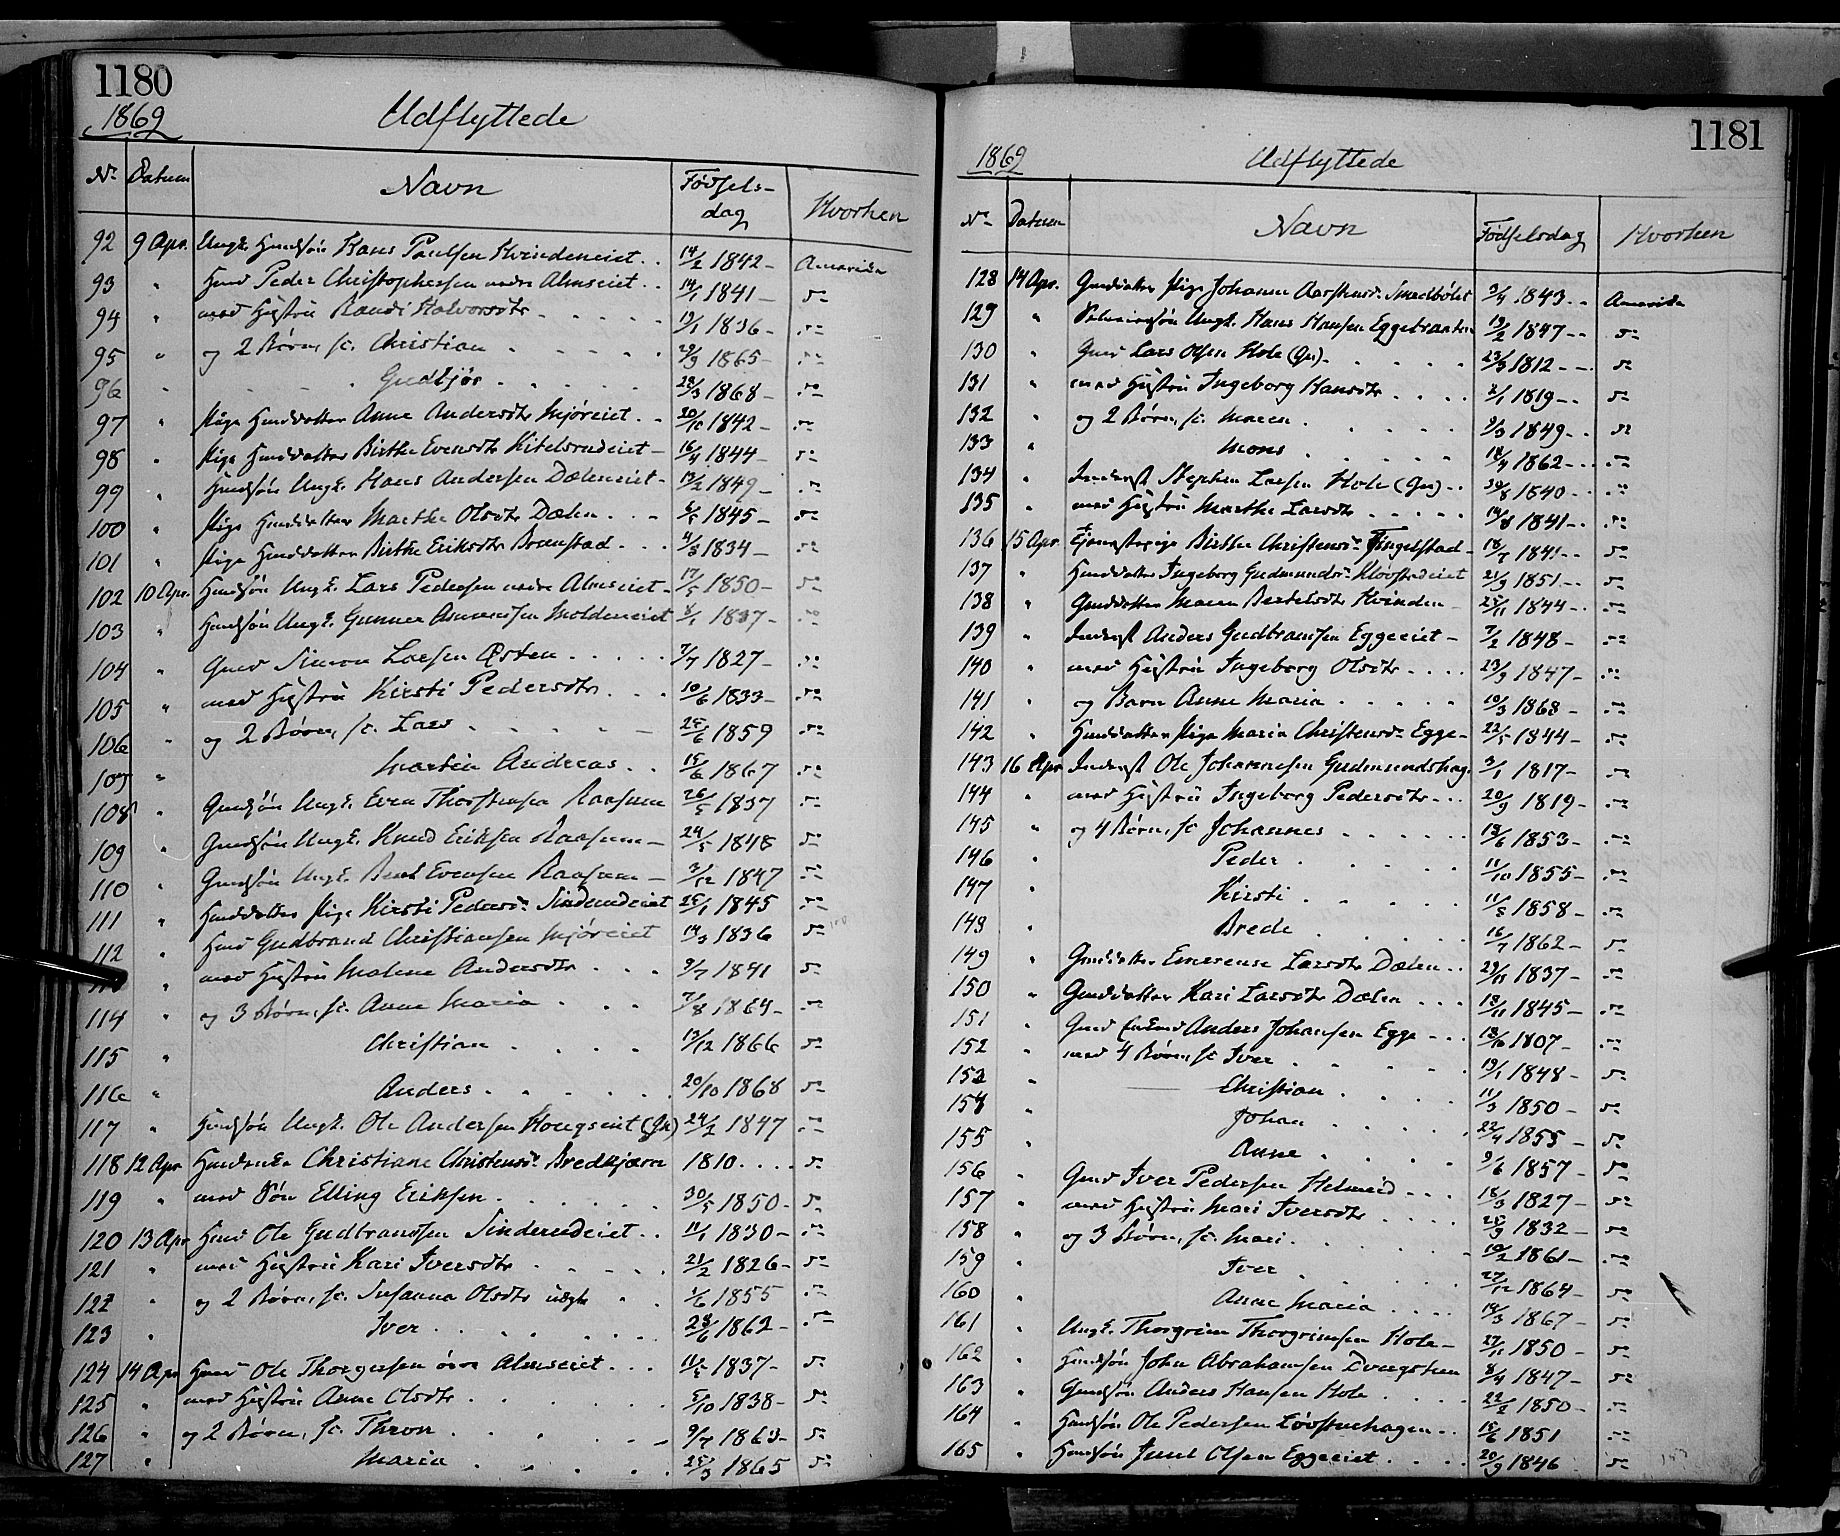 1180
1869
Udflyttede
No Datum Navn Fødsels-dag Hvorhen
92 9 Apr. Ungk. Husmsøn Hans Paulsen Kvindeneiet 14/2 1842 Amerika
93 " Husmd Peder Christophersen nedre Almseiet 14/1 1841 do
94 " med Hustru Randi Halvorsdtr 13/1 1836 do
95 " og 2 Børn, sc. Christian 29/9 1865 do
96 " Gudbjør 28/3 1868 do
97 " Pige Husmdatter Anne Andersdtr Mjøreiet 20/10 1842 do
98 " Pige Husmdatter Birthe Evensdtr Kitelsrudeiet 16/4 1844 do
99 " Husmsøn Ungk. Hans Andersen Dæleneiet 13/2 1849 do
100 " Pige Husmdatter Marthe Olsdtr Dælen 1845 do
101 " Pige Husmdatter Birthe Eriksdtr Brænstad 1834 do
102 10 Apr. Husmsøn Ungk. Lars Pedersen nedre Almseiet 17/5 1850 do
103 " Husmsøn Ungk. Gunner Moldeneiet 1837 do
104 " Gmd Simon Larsen Østen 7/7 1827 do
105 " med Hustru Kirsti Pedersdtr 10/6 1833 do
106 " og 2 Børn, sc. Lars 25/6 1859 do
107 " Martin Andreas 15/6 1867 do
108 " Gmdsøn Ungk. Even Thorstensen Raasum 26/5 1837 do
109 " Gmdsøn Ungk. Knud Eriksen Raasum 24/5 1848 do
110 " Gmdsøn Ungk. Evensen Raasum 3/12 1847 do
111 " Husmdatter Pige Kirsti Pedersdr Sinderudeiet 25/1 1845 do
112 " Husmd Gudbrand Christiansen Mjøreiet 14/3 1836 do
" med Hustru Malene Andersdtr 9/7 1841 do
114 " og 3 Børn, sc. Anne Maria 7/8 1864 do
115 " Christian 13/12 1866 do
116 " Anders 20/10 1868 do
117 " Husmsøn Ungk. Ole Andersen Haugseiet (Gr) 24/2 1847 do
118 12 Apr Husmdenke Christiane Christensdr Bredkjærn 1810 do
119 " med Søn Elling Eriksen 30/5 1850 do
120 13 Apr Husmd Ole Gudbrandsen Sinderudeiet 11/1 1830 do
121 " med Hustru Kari Iversdtr 21/2 1826 do
122 " og 2 Børn, sc. Susanna Olsdtr uægte 1/6 1855 do
123 " Iver 28/6 1862 do
124 14 Apr Husmd Ole Thorgersen øvre Almseiet 1837 do
125 " med Hustru Anne Olsdtr 5/10 1838 do
126 " og 2 Børn, sc. Thron 9/7 1863 do
127 " Maria 25/3 1865 do
1181
1869
Udflyttede
No Datum Navn Fødselsdag Hvorhen
128 14 Apr. Gmddatter Pige Johanne Smedbølet 3/4 1843 Amerika
129 " Ungk. Hans Hansen Eggebraaten 19/2 1847 do
130 " Gmd Lars Olsen Hole (Gr) 1812 do
131 " med Hustru Ingeborg Hansdtr 2/1 1819 do
132 " og 2 Børn, sc. Maren 9/3 1849 do
133 " Mons 18/4 1862 do
134 " Inderst Stephen Larsen Hole (Gr) 30/8 1840 do
135 " med Hustru Marthe Larsdtr 14/8 1841 do
136 15 Apr. Tjenestepige Birthe Christensdr Tingelstad 18/7 1841 do
137 " Husmdatter Ingeborg Gudmundsdr Kløvstadeiet 21/9 1851 do
138 " Gmddatter Maren Bertelsdtr Kvinden 25/11 1844 do
139 " Inderst Anders Gudbrandsen Eggeeiet 7/2 1848 do
140 " med Hustru Ingeborg Olsdtr 23/9 1847 do
141 " og Barn Anne Maria 10/3 1868 do
142 " Husmdatter Pige Maria Christensdr Egge 22/5 1844 do
143 16 Apr Inderst Ole Johannesen Gudmundshag 3/1 1817 do
144 " med Hustru Ingeborg Pedersdtr 20/9 1819 do
145 " og 4 Børn, sc Johannes 13/6 1853 do
146 " Peder 11/10 1855 do
147 " Kirsti 11/5 1858 do
148 " Brede 16/7 1862 do
149 " Gmddatter Emerense Larsdtr Dælen 1837 do
150 " Gmddatter Kari Larsdtr Dælen 18/11 1845 do
151 " Gmd Enkemd Anders Johansen Egge 18/10 1807 do
152 " med 4 Børn, sc Iver 19/1 1848 do
153 " Christian 11/3 1850 do
154 " Johan 22/4 1855 do
155 " Anne 9/6 1857 do
156 " Gmd Iver Pedersen Helmeid 18/3 1827 do
157 " med Hustru Mari Iversdtr 25/9 1832 do
158 " og 3 Børn, sc. Mari 10/2 1861 do
159 " Iver 27/12 1864 do
160 " Anne Maria 14/3 1867 do
161 " Ungk. Thorgrim Thorgrimsen Hole 27/1 1850 do
162 " Husmsøn John Abrahamsen Dvergsten 8/4 1847 do
163 " Gmdsøn Anders Hansen Hole 22/2 1850 do
164 " Husmsøn Ole Pedersen Løvstuehagen 15/6 1851 do
165 " Husmsøn Juul Olsen Eggeeiet 20/9 1846 do